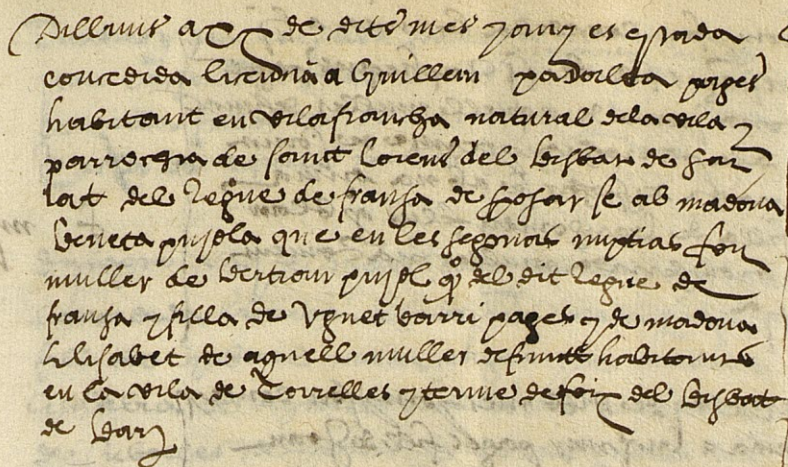 Dilluns a xx de dit mes y any es estada
concedida licencia a Guillem padalea pages
habitant en vilafrancha natural de la vila y
parrochia de sanct Lorens del bisbat de sar
lat del regne de fransa de sposar se ab madona
beneta pujola que en les segonas nuptias fou
muller de bertran pujol qº del dit regne de
fransa y filla de Ugnet barri pages y de madona
Elisabet de aquell muller defuncts habitants
en la vila de Torrelles y terme de foix del bisbat
de bar